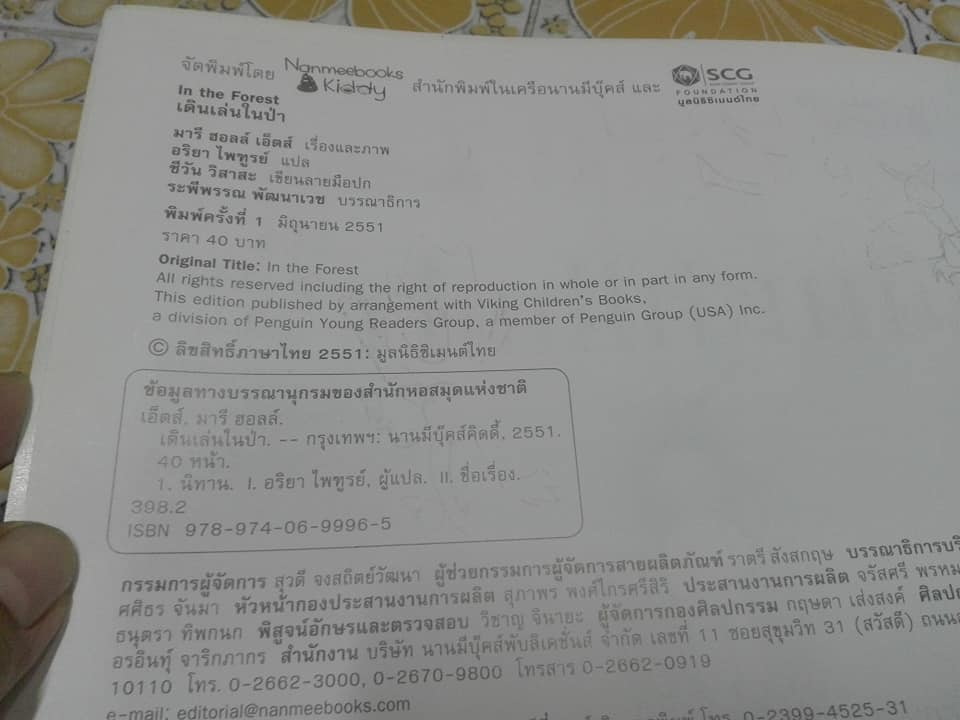 จัดพิมพ์โดย Nanmeebooks Kiddy สำนักพิมพ์ในเครือนานมีบุ๊คส์ และ SCG FOUNDATION มูลนิธิซิเมนต์ไทย
In the Forest
เดินเล่นในป่า
มารี ฮอลล์ เอ็ตส์ เรื่องและภาพ
อริยา ไพฑูรย์ แปล
ชีวัน วิสาสะ เขียนลายมือปก
ระพีพรรณ พัฒนาเวช บรรณาธิการ
พิมพ์ครั้งที่ 1 มิถุนายน 2551
ราคา 40 บาท
Original Title: In the Forest
All rights reserved including the right of reproduction in whole or in part in any form.
This edition published by arrangement with Viking Children's Books,
a division of Penguin Young Readers Group, a member of Penguin Group (USA) Inc.
© ลิขสิทธิ์ภาษาไทย 2551: มูลนิธิซิเมนต์ไทย
ข้อมูลทางบรรณานุกรมของสำนักหอสมุดแห่งชาติ
เอ็ตส์, มารี ฮอลล์.
เดินเล่นในป่า. -- กรุงเทพฯ: นานมีบุ๊คส์คิดดี้, 2551.
40 หน้า.
1. นิทาน. I. อริยา ไพฑูรย์, ผู้แปล. II. ชื่อเรื่อง.
398.2
ISBN 978-974-06-9996-5
กรรมการผู้จัดการ สุวดี จงสถิตย์วัฒนา ผู้ช่วยกรรมการผู้จัดการสายผลิตภัณฑ์ ราตรี สังสกฤษ บรรณาธิการบริ
ศศิธร จันมา หัวหน้ากองประสานงานการผลิต สุภาพร พงศ์ไกรศรีสิริ ประสานงานการผลิต จรัสศรี พรหม
ธนุตรา ทิพกนก พิสูจน์อักษรและตรวจสอบ วิชาญ จินายะ ผู้จัดการกองศิลปกรรม กฤษดา เส่งสงค์ ศิลป
อรอินทุ์ จาริกภากร สำนักงาน บริษัท นานมีบุ๊คส์พับลิเคชั่นส์ จำกัด เลขที่ 11 ซอยสุขุมวิท 31 (สวัสดี) ถนน
10110 โทร. 0-2662-3000, 0-2670-9800 โทรสาร 0-2662-0919
e-mail: editorial@nanmeebooks.com
โทร. 0-2399-4525-31